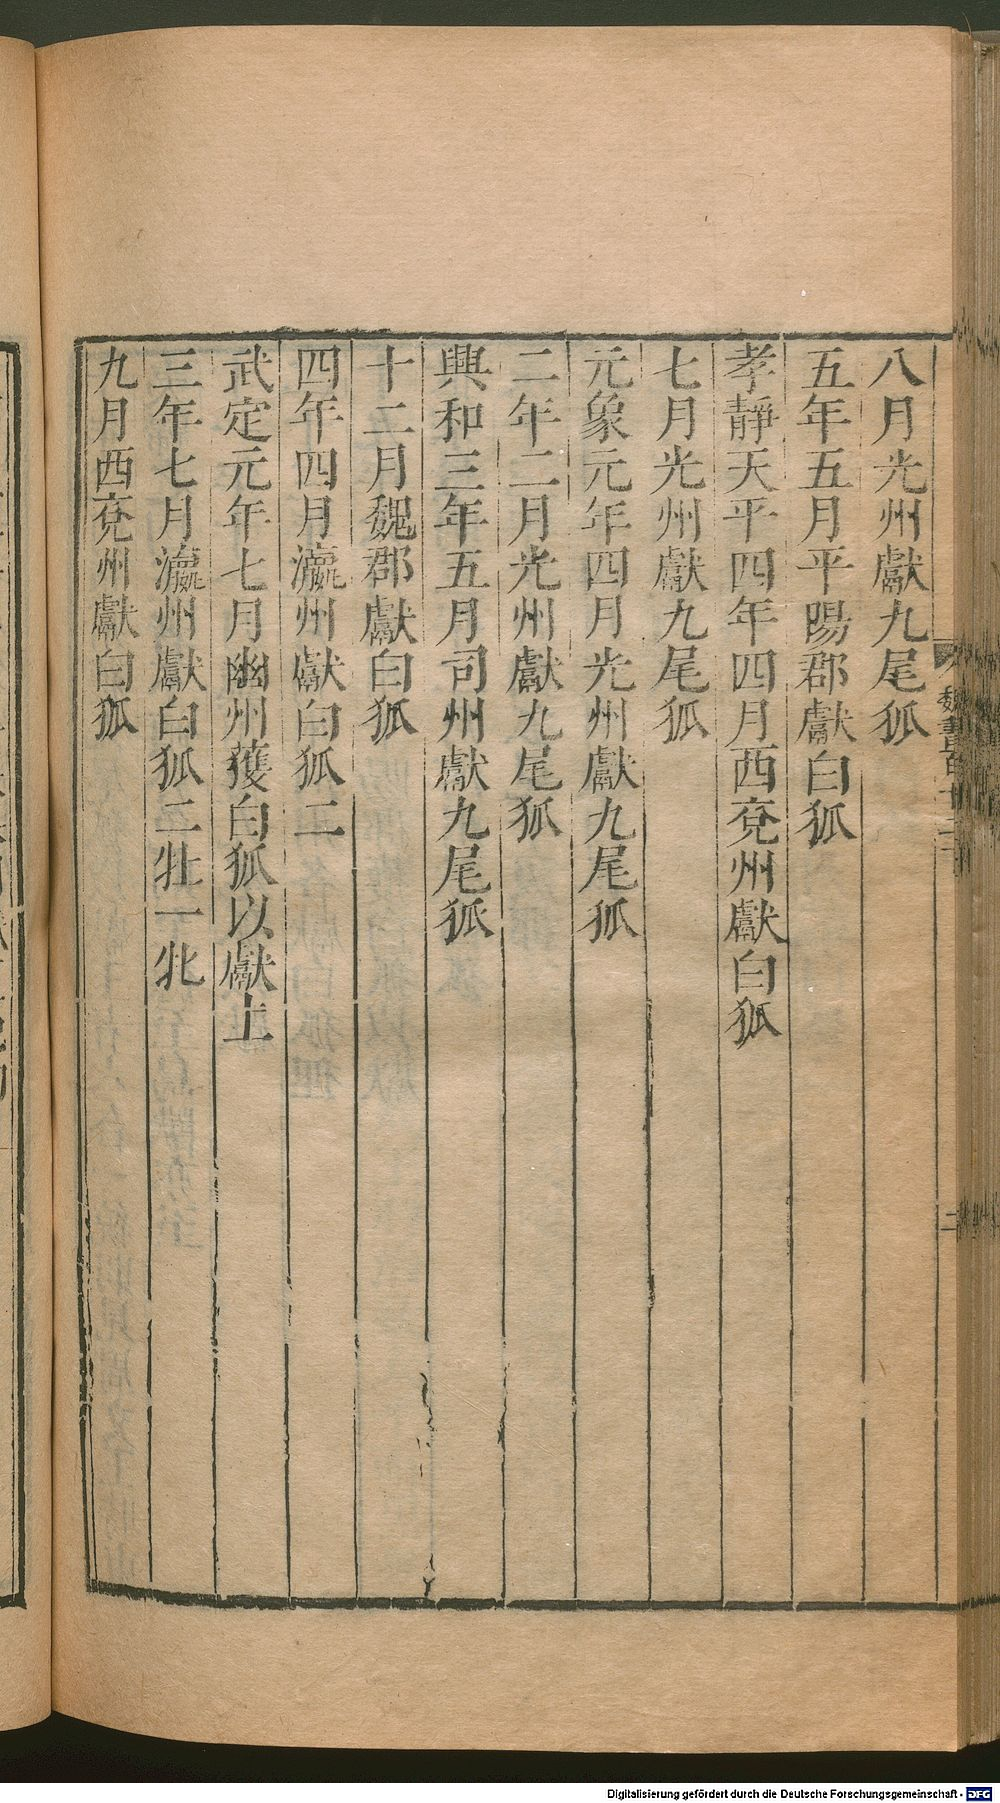 八月光州獻九尾狐
五年五月平陽郡獻白狐
孝靜天平四年四月西兗州獻白狐
七月光州獻九尾狐
元象元年四月光州獻九尾狐
二年二月光州獻九尾狐
興和三年五月司州獻九尾狐
十二月魏郡獻白狐
四年四月瀛州獻白狐二
武定元年七月幽州獲白狐以獻上
三年七月瀛州獻白狐二牡一牝
九月西兗州獻白狐
Digitalisierung gefördert durch die Deutsche Forschungsgemeinschaft - DFG